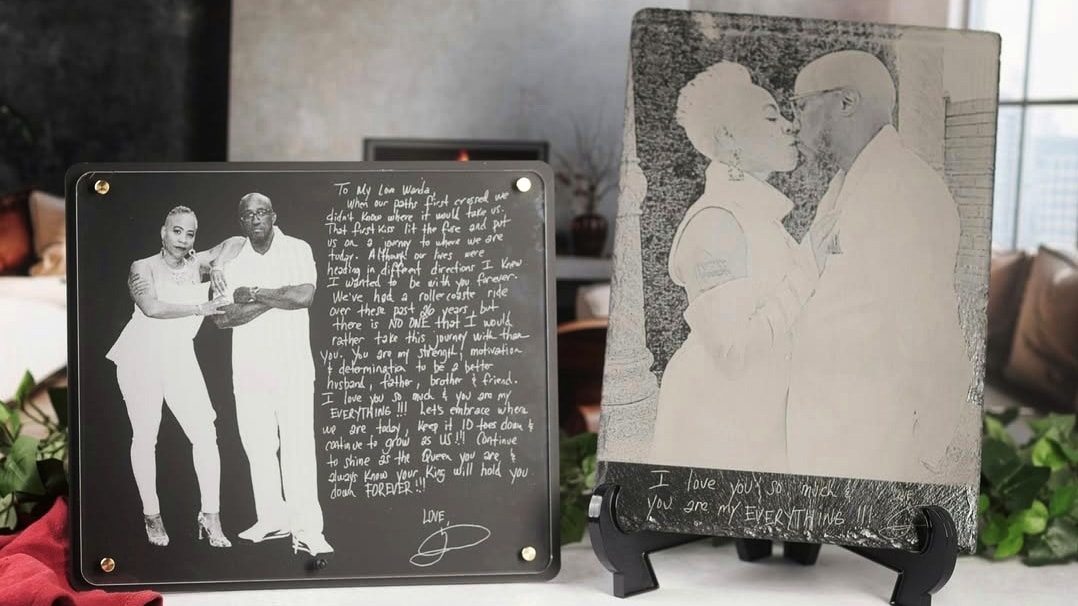 To My Love Wanda,
When our paths first crossed we
didn't know where it would take us.
That first kiss lit the fire and put
us on a journey to where we are
today. Although our lives were
heading in different directions I knew
I wanted to be with you forever.
We've had a rollercoaste ride
over these past 26 years, but
there is NO ONE that I would
rather take this journey with than
you. You are my strength, motivation
& determination to be a better
husband, father, brother & friend.
I love you so much & you are my
EVERYTHING!!! Let's embrace where
we are today, keep it 10 toes down &
continue to grow as US!!! Continue
to shine as the Queen you are &
always know your King will hold you
down FOREVER!!!
LOVE,
I love you so much &
you are my EVERYTHING !!!
LOVE